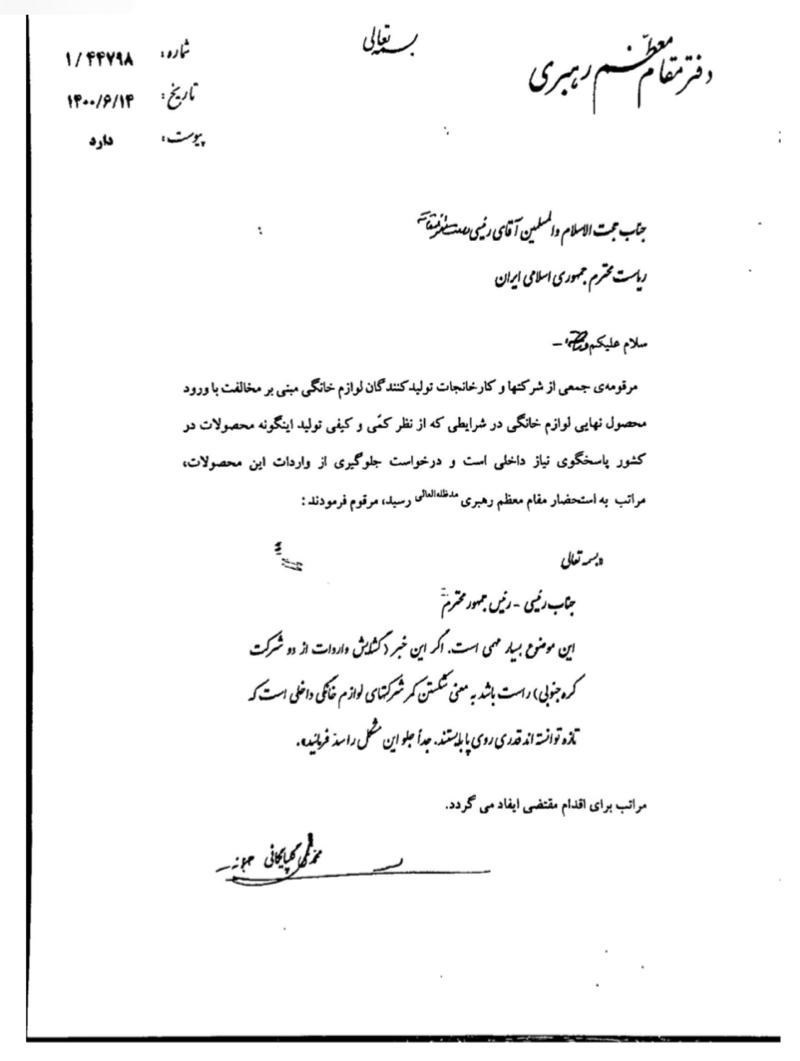 بسمه تعالی
دفتر مقام معظم رهبری
شماره: ۱/۴۴۷۹۸
تاریخ: ۱۴۰۰/۶/۱۴
پیوست: دارد
جناب حجت الاسلام والمسلمین آقای رئیسی
ریاست محترم جمهوری اسلامی ایران
سلام علیکم
مرقومه‌ی جمعی از شرکتها و کارخانجات تولیدکنندگان لوازم خانگی مبنی بر مخالفت با ورود
محصول نهایی لوازم خانگی در شرایطی که از نظر کمّی و کیفی تولید اینگونه محصولات در
کشور پاسخگوی نیاز داخلی است و درخواست جلوگیری از واردات این محصولات،
مراتب به استحضار مقام معظم رهبری مدظله‌العالی رسید، مرقوم فرمودند:
«بسمه تعالی
جناب رئیسی - رئیس جمهور محترم
این موضوع بسیار مهمی است. اگر این خبر (گشایش واردات از دو شرکت
کره جنوبی) راست باشد به معنی شکستن کمر شرکتهای لوازم خانگی داخلی است که
تازه توانسته‌اند قدری روی پا بایستند. جداً جلو این مشکل را سدّ فرمائید».
مراتب برای اقدام مقتضی ایفاد می گردد.
محمدی گلپایگانی